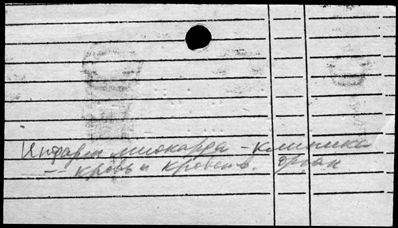 Инфаркт миокарда - клиника
-- кровь и кроветв. орган